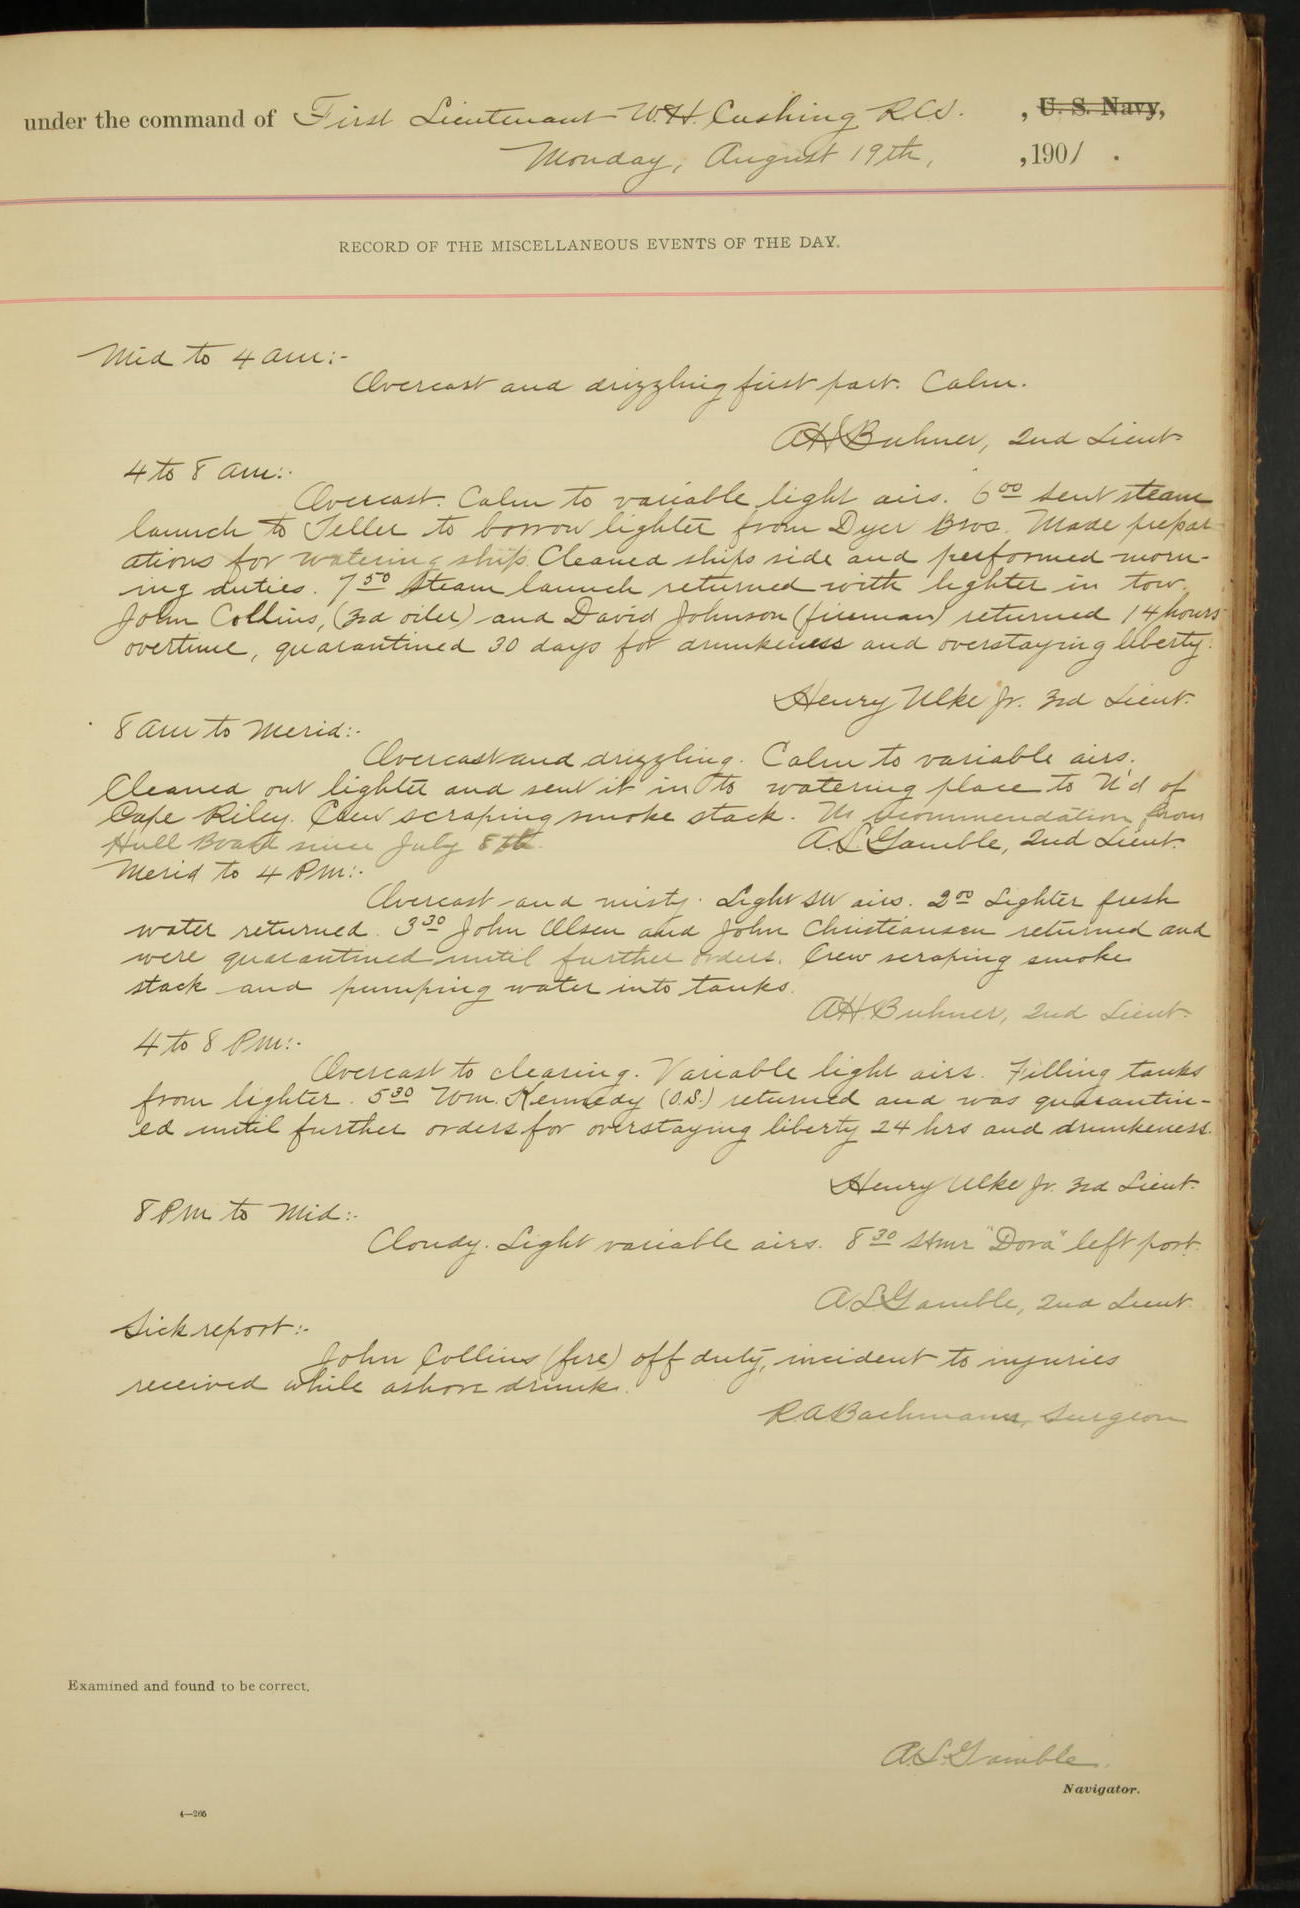 under the command of First Lieutenant W.H. Cushing R.C.S. , U. S. Navy,
Monday, August 19th, , 1901 .
RECORD OF THE MISCELLANEOUS EVENTS OF THE DAY.
Mid to 4 am:-
Overcast and drizzling first part. Calm.
A H Buhner, 2nd Lieut
4 to 8 am:-
Overcast. Calm to variable light airs. 6 00 Sent steam
launch to Teller to borrow lighter from Dyer Bros. Made prepar-
ations for watering ship. Cleaned ships side and performed morn-
ing duties. 7 50 Steam launch returned with lighter in tow.
John Collins, (3rd oiler) and David Johnson (fireman) returned 14 hours
overtime, quarantined 30 days for drunkeness and overstaying liberty.
Henry Ulke Jr. 3rd Lieut.
8 am to Merid:-
Overcast and drizzling. Calm to variable airs.
Cleaned out lighter and sent it in to watering place to N'd of
Cape Riley. Crew scraping smoke stack. recommendation from
Hull Board since July 8th.
A.L. Gamble, 2nd Lieut.
Merid to 4 Pm:-
Overcast and misty. Light SW airs. 2 00 Lighter fresh
water returned. 3 30 John Olsen and John Christiansen returned and
were quarantined until further orders. Crew scraping smoke
stack and pumping water into tanks.
A H. Buhner, 2nd Lieut.
4 to 8 Pm:-
Overcast to clearing. Variable light airs. Filling tanks
from lighter. 5 30 Wm. Kennedy (O.S.) returned and was quarantin-
ed until further orders for overstaying liberty 24 hrs and drunkeness.
Henry Ulke Jr. 3rd Lieut.
8 Pm to Mid:-
Cloudy. Light variable airs. 8 30 Stmr "Dora" left port.
A.L. Gamble, 2nd Lieut.
Sick report:-
John Collins (fire) off duty, incident to injuries
received while ashore drunk.
R A Bachmann, Surgeon
Examined and found to be correct.
A.L. Gamble.
Navigator.
4—265